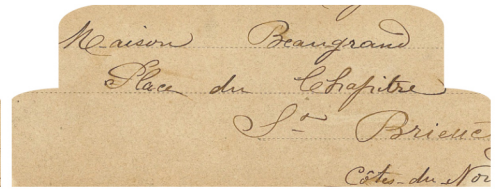 Maison Beaugrand
Place du Chapitre
St Brieuc
Côtes-du-Nor